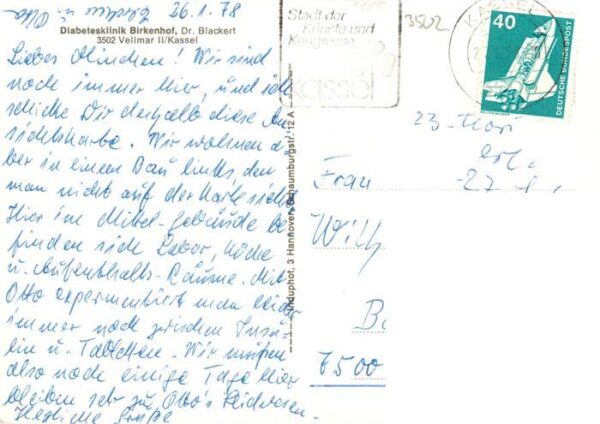 26.1.78
Diabetesklinik Birkenhof, Dr. Blackert
3502 Vellmar II/Kassel
Liebes Minchen! Wir sind
noch immer hier, und ich
schicke Dir deshalb diese An
sichtskarte. Wir wohnen drü
ber in einem Bau links, den
man nicht auf der Karte sieht.
Hier im Mittel-Gebäude be
finden sich Labor, Küche
u. Aufenthalts-Räume. Mit
Otto experimentiert man leider
immer noch zwischen Insu
lin u. Tabletten. Wir müßen
also noch einige Tage hier
bleiben sehr zu Otto's Leidwesen.
Herzliche Grüße
und Otto
Schaumburgstr. 12 A
3 Hannover
Stadt der
Künste und
Kongresse
kassel
3502
40
DEUTSCHE BUNDESPOST
Frau
Willy
7500